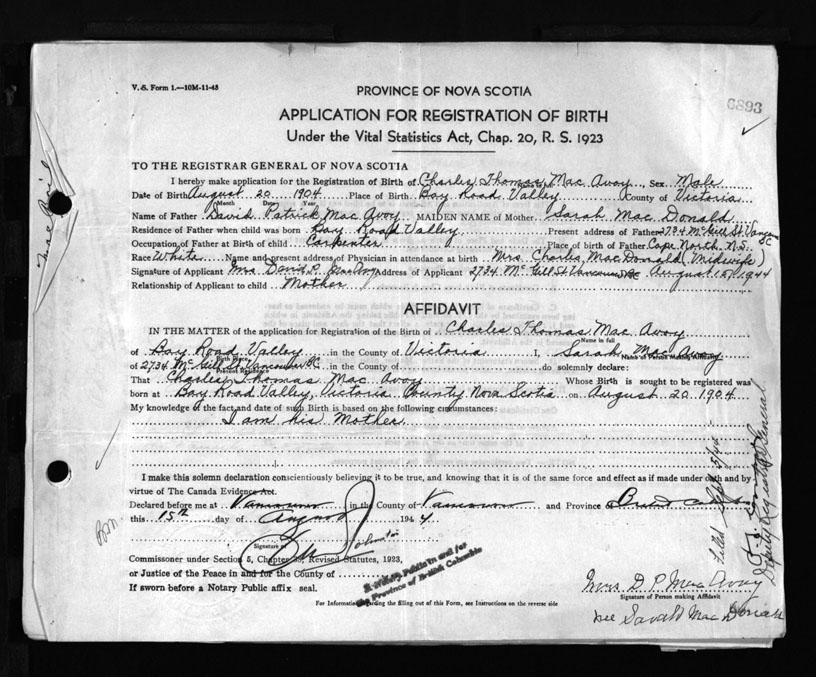 V. S. Form 1.—10M-11-43
PROVINCE OF NOVA SCOTIA
6893
APPLICATION FOR REGISTRATION OF BIRTH
Under the Vital Statistics Act, Chap. 20, R. S. 1923
TO THE REGISTRAR GENERAL OF NOVA SCOTIA
I hereby make application for the Registration of Birth of Charles Thomas Mac Avoy, Sex Male
Name in full
Date of Birth August 20 1904 Place of Birth Bay Road Valley County of Victoria
Month Day Year
Name of Father David Patrick Mac Avoy MAIDEN NAME of Mother Sarah Mac Donald
Residence of Father when child was born Bay Road Valley Present address of Father 2734 McGill St. Vancouver BC
Occupation of Father at Birth of child Carpenter Place of birth of Father Cape North N.S.
Race White Name and present address of Physician in attendance at birth Mrs Charles MacDonald (Midwife)
Signature of Applicant Mrs David P. MacAvoy Address of Applicant 2734 McGill St Vancouver BC August 15, 1944
Relationship of Applicant to child Mother
AFFIDAVIT
IN THE MATTER of the application for Registration of Birth of Charles Thomas Mac Avoy
Name in full
of Bay Road Valley in the County of Victoria I, Sarah Mac Avoy
Birth Place Name of Person Making Affidavit
of 2734 McGill St Vancouver BC in the County of do solemnly declare:
Present Residence
That Charles Thomas Mac Avoy Whose Birth is sought to be registered was
born at Bay Road Valley, Victoria County Nova Scotia on August 20 1904
My knowledge of the fact and date of such Birth is based on the following circumstances:
I am his Mother
I make this solemn declaration conscientiously believing it to be true, and knowing that it is of the same force and effect as if made under oath and by
virtue of The Canada Evidence Act.
Declared before me at Vancouver in the County of Vancouver and Province of
this 15th day of August 1944
Signature of
Commissioner under Section 5, Chapter Revised Statutes, 1923,
or Justice of the Peace in and for the County of
If sworn before a Notary Public affix seal.
A Notary Public in and for
the Province of British Columbia
For Information regarding the filling out of this Form, see Instructions on the reverse side
Mrs D. P. MacAvoy
Signature of Person making Affidavit
nee Sarah Mac Donald
Filed Sept 5/44
Deputy Registrar General